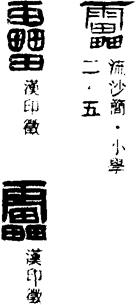 流沙簡·小學
二·五
漢印徵
漢印徵